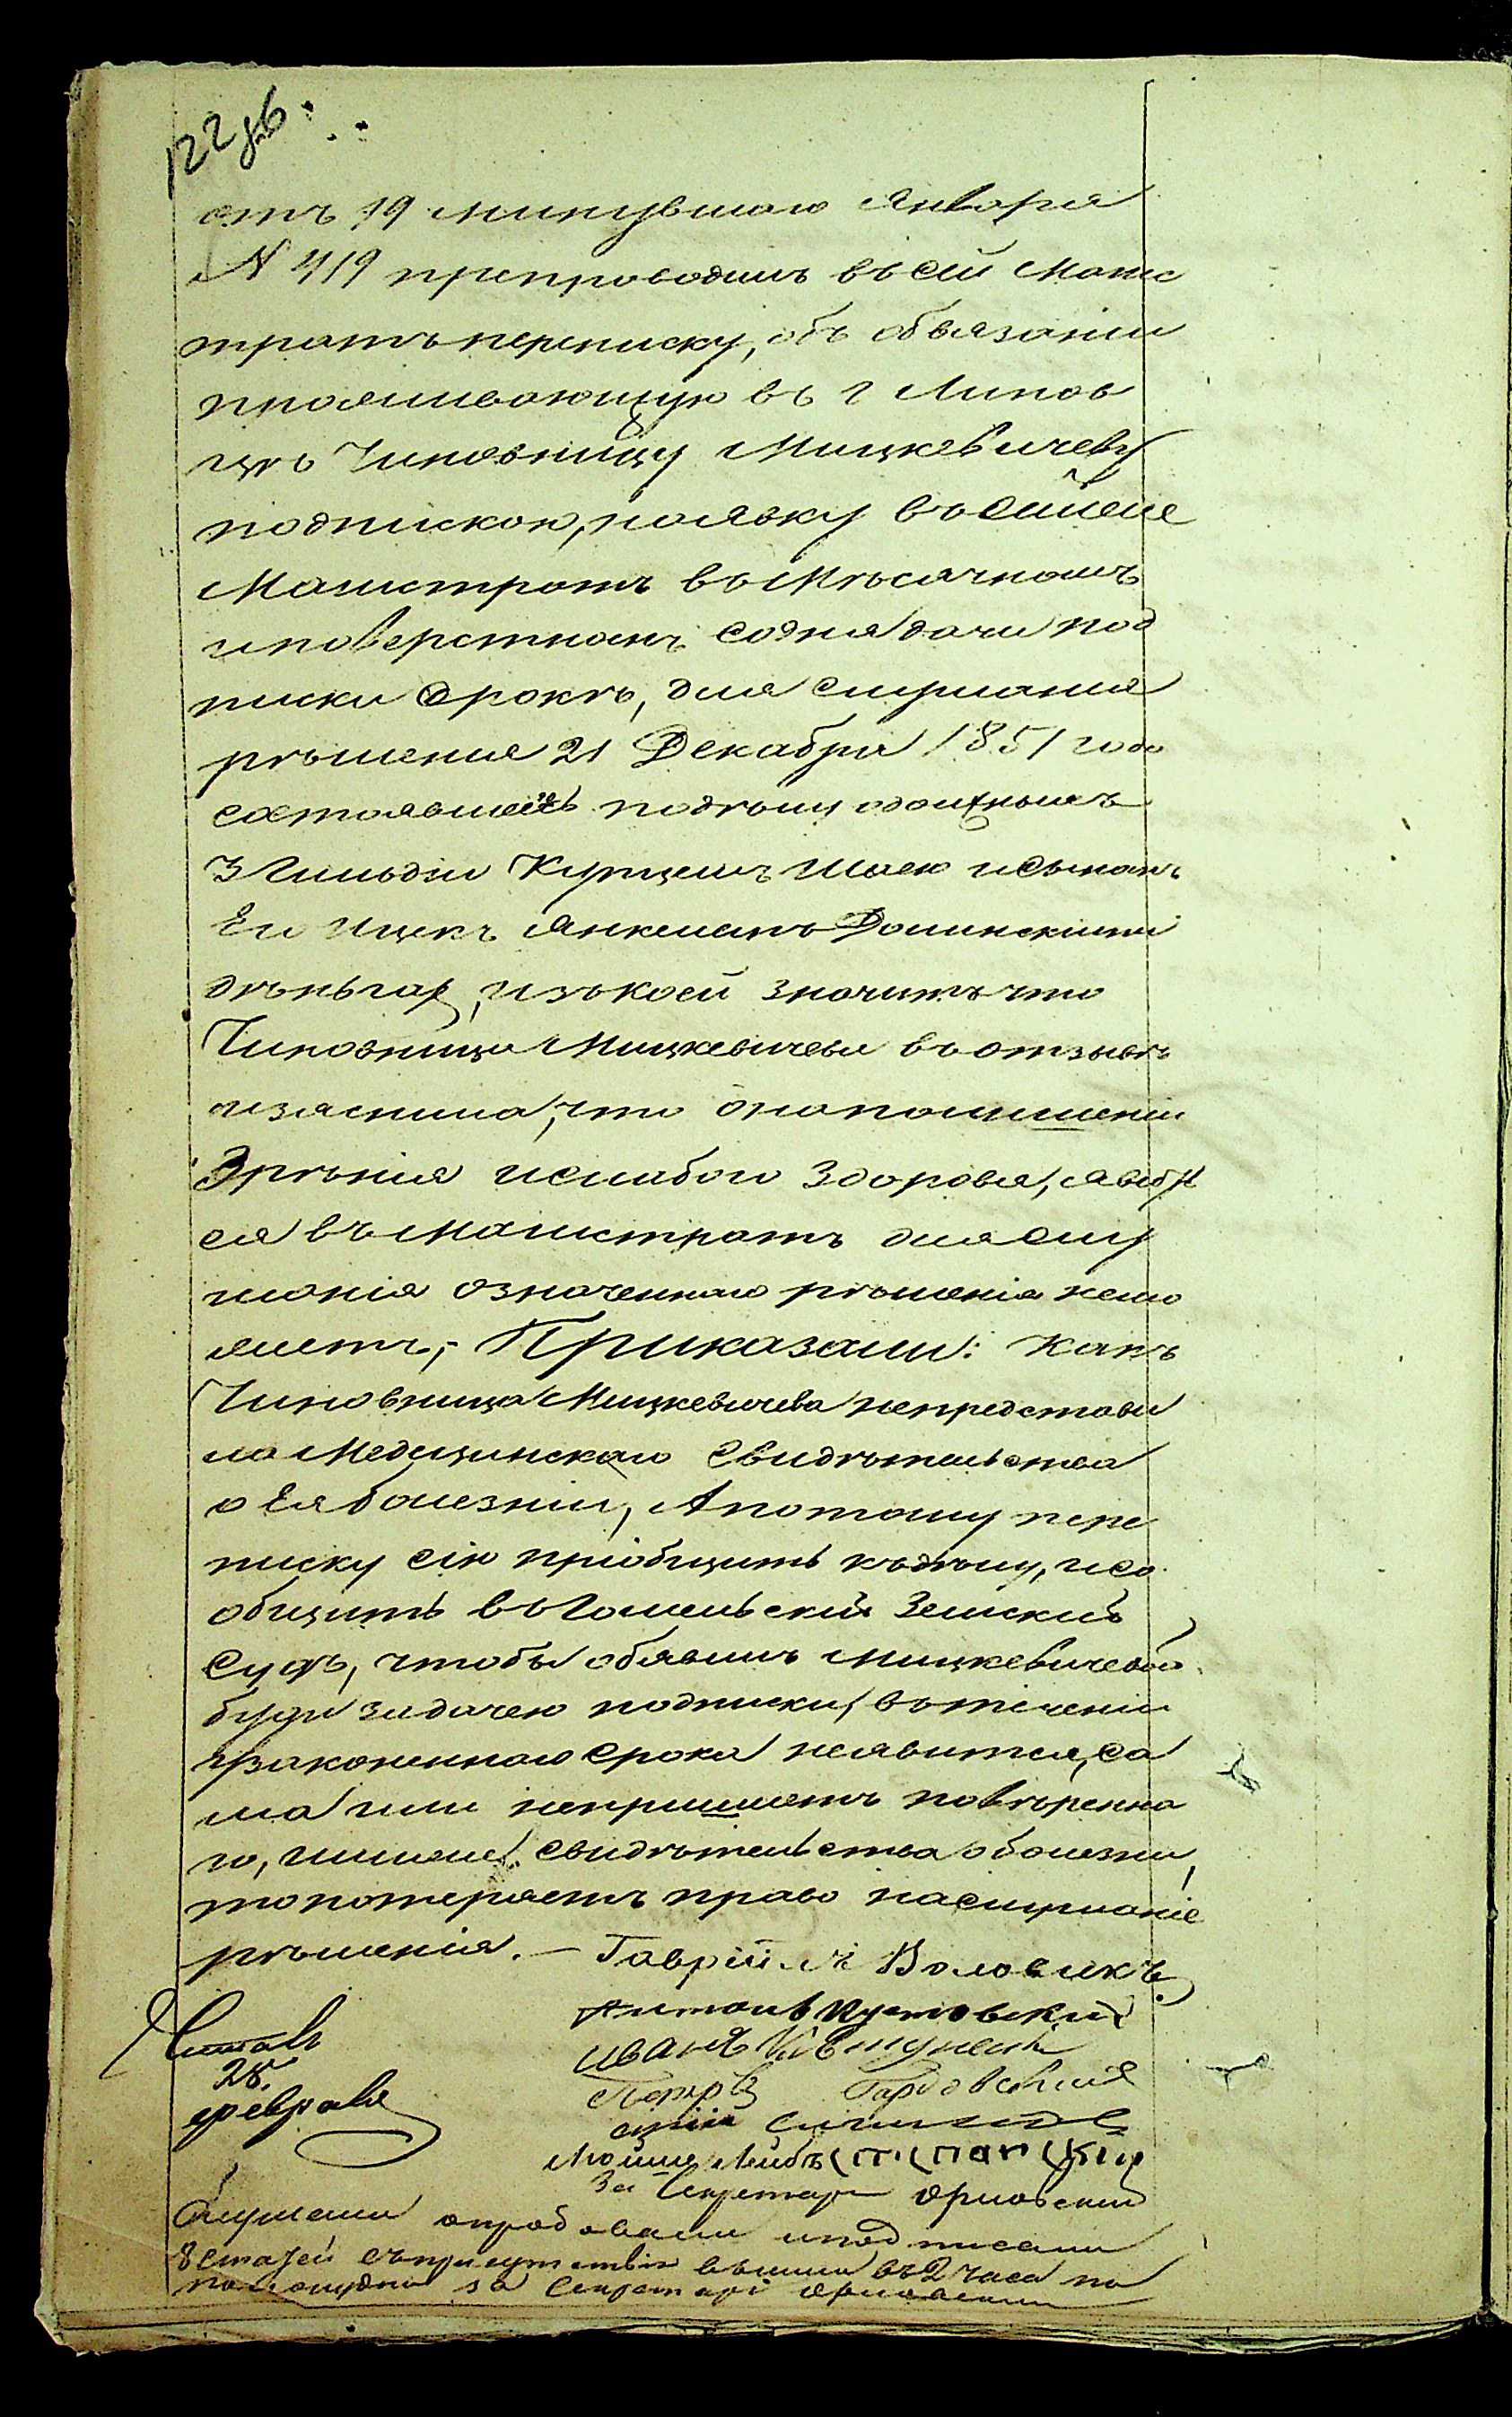 122 об.
отъ 19 минувшаго Января
N 419 препроводилъ въ сей Маги
стратъ переписку, объ обязаніи
проживающую въ г Липов
цѣ Чиновницу Мицкевичеву
подпискою, на явку въ сей же
Магистратъ въ Мѣсячномъ
и поверстномъ со дня дачи под
писки срокѣ, для слушанія
рѣшенія 21 Декабря 1851 года
состоявшейся по дѣлу
3 Гильдіи Купцемъ Шаею и Сыномъ
Его Ицекъ Янкелемъ Долинскими
деньгах, изъ коей значитъ что
Чиновница Мицкевичева въ отзывѣ
изяснила, что она по лишеніи
Зрѣнія и слабого Здоровя, явит
ся въ Магистратъ для слу
шанія означеннаго рѣшенія не мо
жетъ; Приказали: какъ
Чиновница Мицкевичева непредстави
ла Медицинскаго Свидѣтельства
о Ея болезніи, А потому пере
писку сію пріобщить къ дѣлу, и со
общить въ Гомельскій Земскій
Судъ, чтобы обявилъ Мицкевичевой
буди за дачею подписки, въ теченіи
узаконеннаго срока неявится, са
ма или непришлетъ повѣренна
го, или же свидѣтельства о болезни,
то потеряетъ право на слушаніе
рѣшенія. — Гавріилъ Воловикъ
Антонъ Кустовскій
Иванъ
Петръ Гардовскій
Мойше Лейбъ
За Секретаря Орловскій
Читалъ
28.
февраля
Слушали опробовали и подписали
8 статей съ присутствія вышли въ 2 часа по
полудни за Секретаря Орловскій